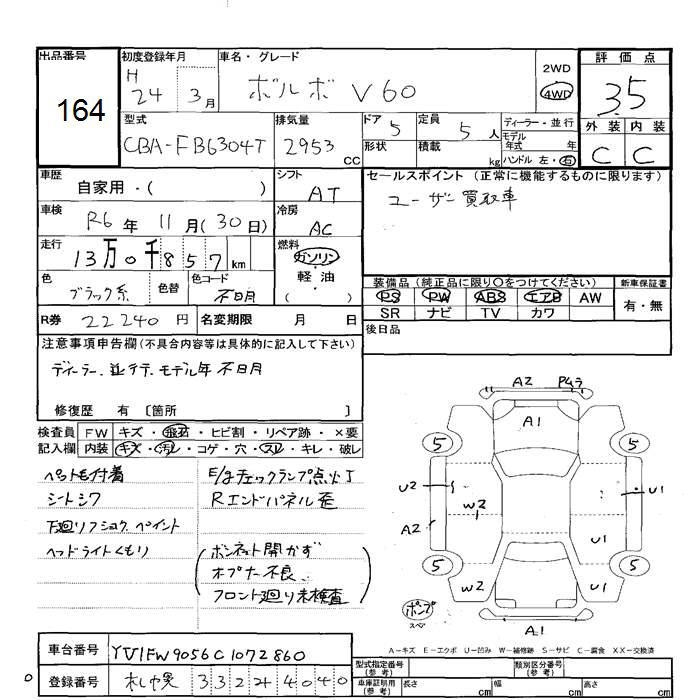 出品番号 初度登録年月 車名・グレード 評価点
164
H 24年 3月 ボルボ V60 2WD 4WD 3.5
型式 排気量 ドア 5 定員 5人 ディーラー・並行 外装 内装
CBA-FB6304T 2953cc 形状 積載 kg モデル年式 年 ハンドル 左・右 C C
車歴 自家用・( ) シフト AT セールスポイント (正常に機能するものに限ります)
ユーザー買取車
車検 R6年 11月(30日) 冷房 AC
走行 13万0千857km 燃料 ガソリン 軽油 ( )
色 ブラック系 色替 色コード 不明
装備品(純正品に限り〇をつけてください) 新車保証書
PS PW ABS エアB AW 有・無
SR ナビ TV カワ
R券 22240円 名変期限 月 日 後日品
注意事項申告欄(不具合内容等は具体的に記入して下さい)
ディーラー、並行、モデル年不明
修復歴 有 〔箇所 〕
検査員 FW キズ・飛石・ヒビ割・リペア跡・×要
記入欄 内装 キズ・汚レ・コゲ・穴・スレ・キレ・破レ
ペット毛付着 E/gチェックランプ点灯
シートシワ Rエンドパネル歪
下廻りフショク、ペイント
ヘッドライトくもり (ボンネット開かず
オープナー不良、
フロント廻り未検査)
A2
A1
5 5
U2 W2 U1
A2 U1
5 5
W2 U1
ポンプ
スペ
A1
A-キズ E-エクボ U-凹み W-補修跡 S-サビ C-腐食 XX-交換済
車台番号 YV1FW9056C1072860
登録番号 札幌 332 な 4040
型式指定番号(参考) 類別区分番号(参考)
車庫証明用(参考) 長さ cm 幅 cm 高さ cm